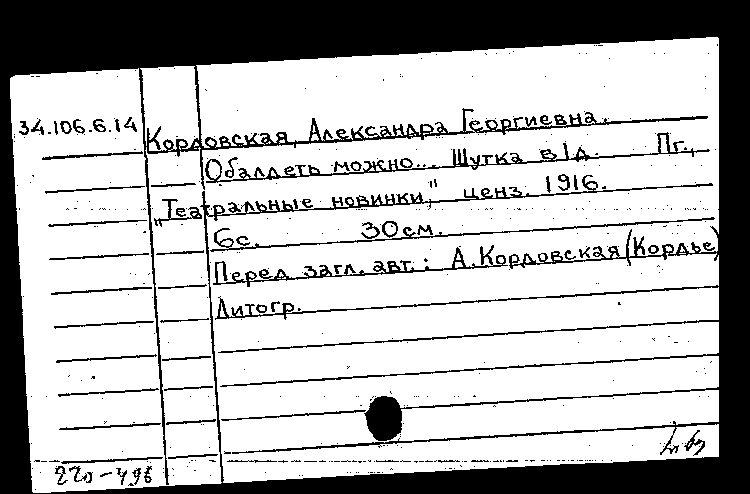 34.106.6.14
Кордовская, Александра Георгиевна.
Обалдеть можно... Шутка в 1 д. Пг.,
"Театральные новинки," ценз. 1916.
6с. 30см.
Перед загл. авт.: А. Кордовская (Кордье)
Литогр.
220-496